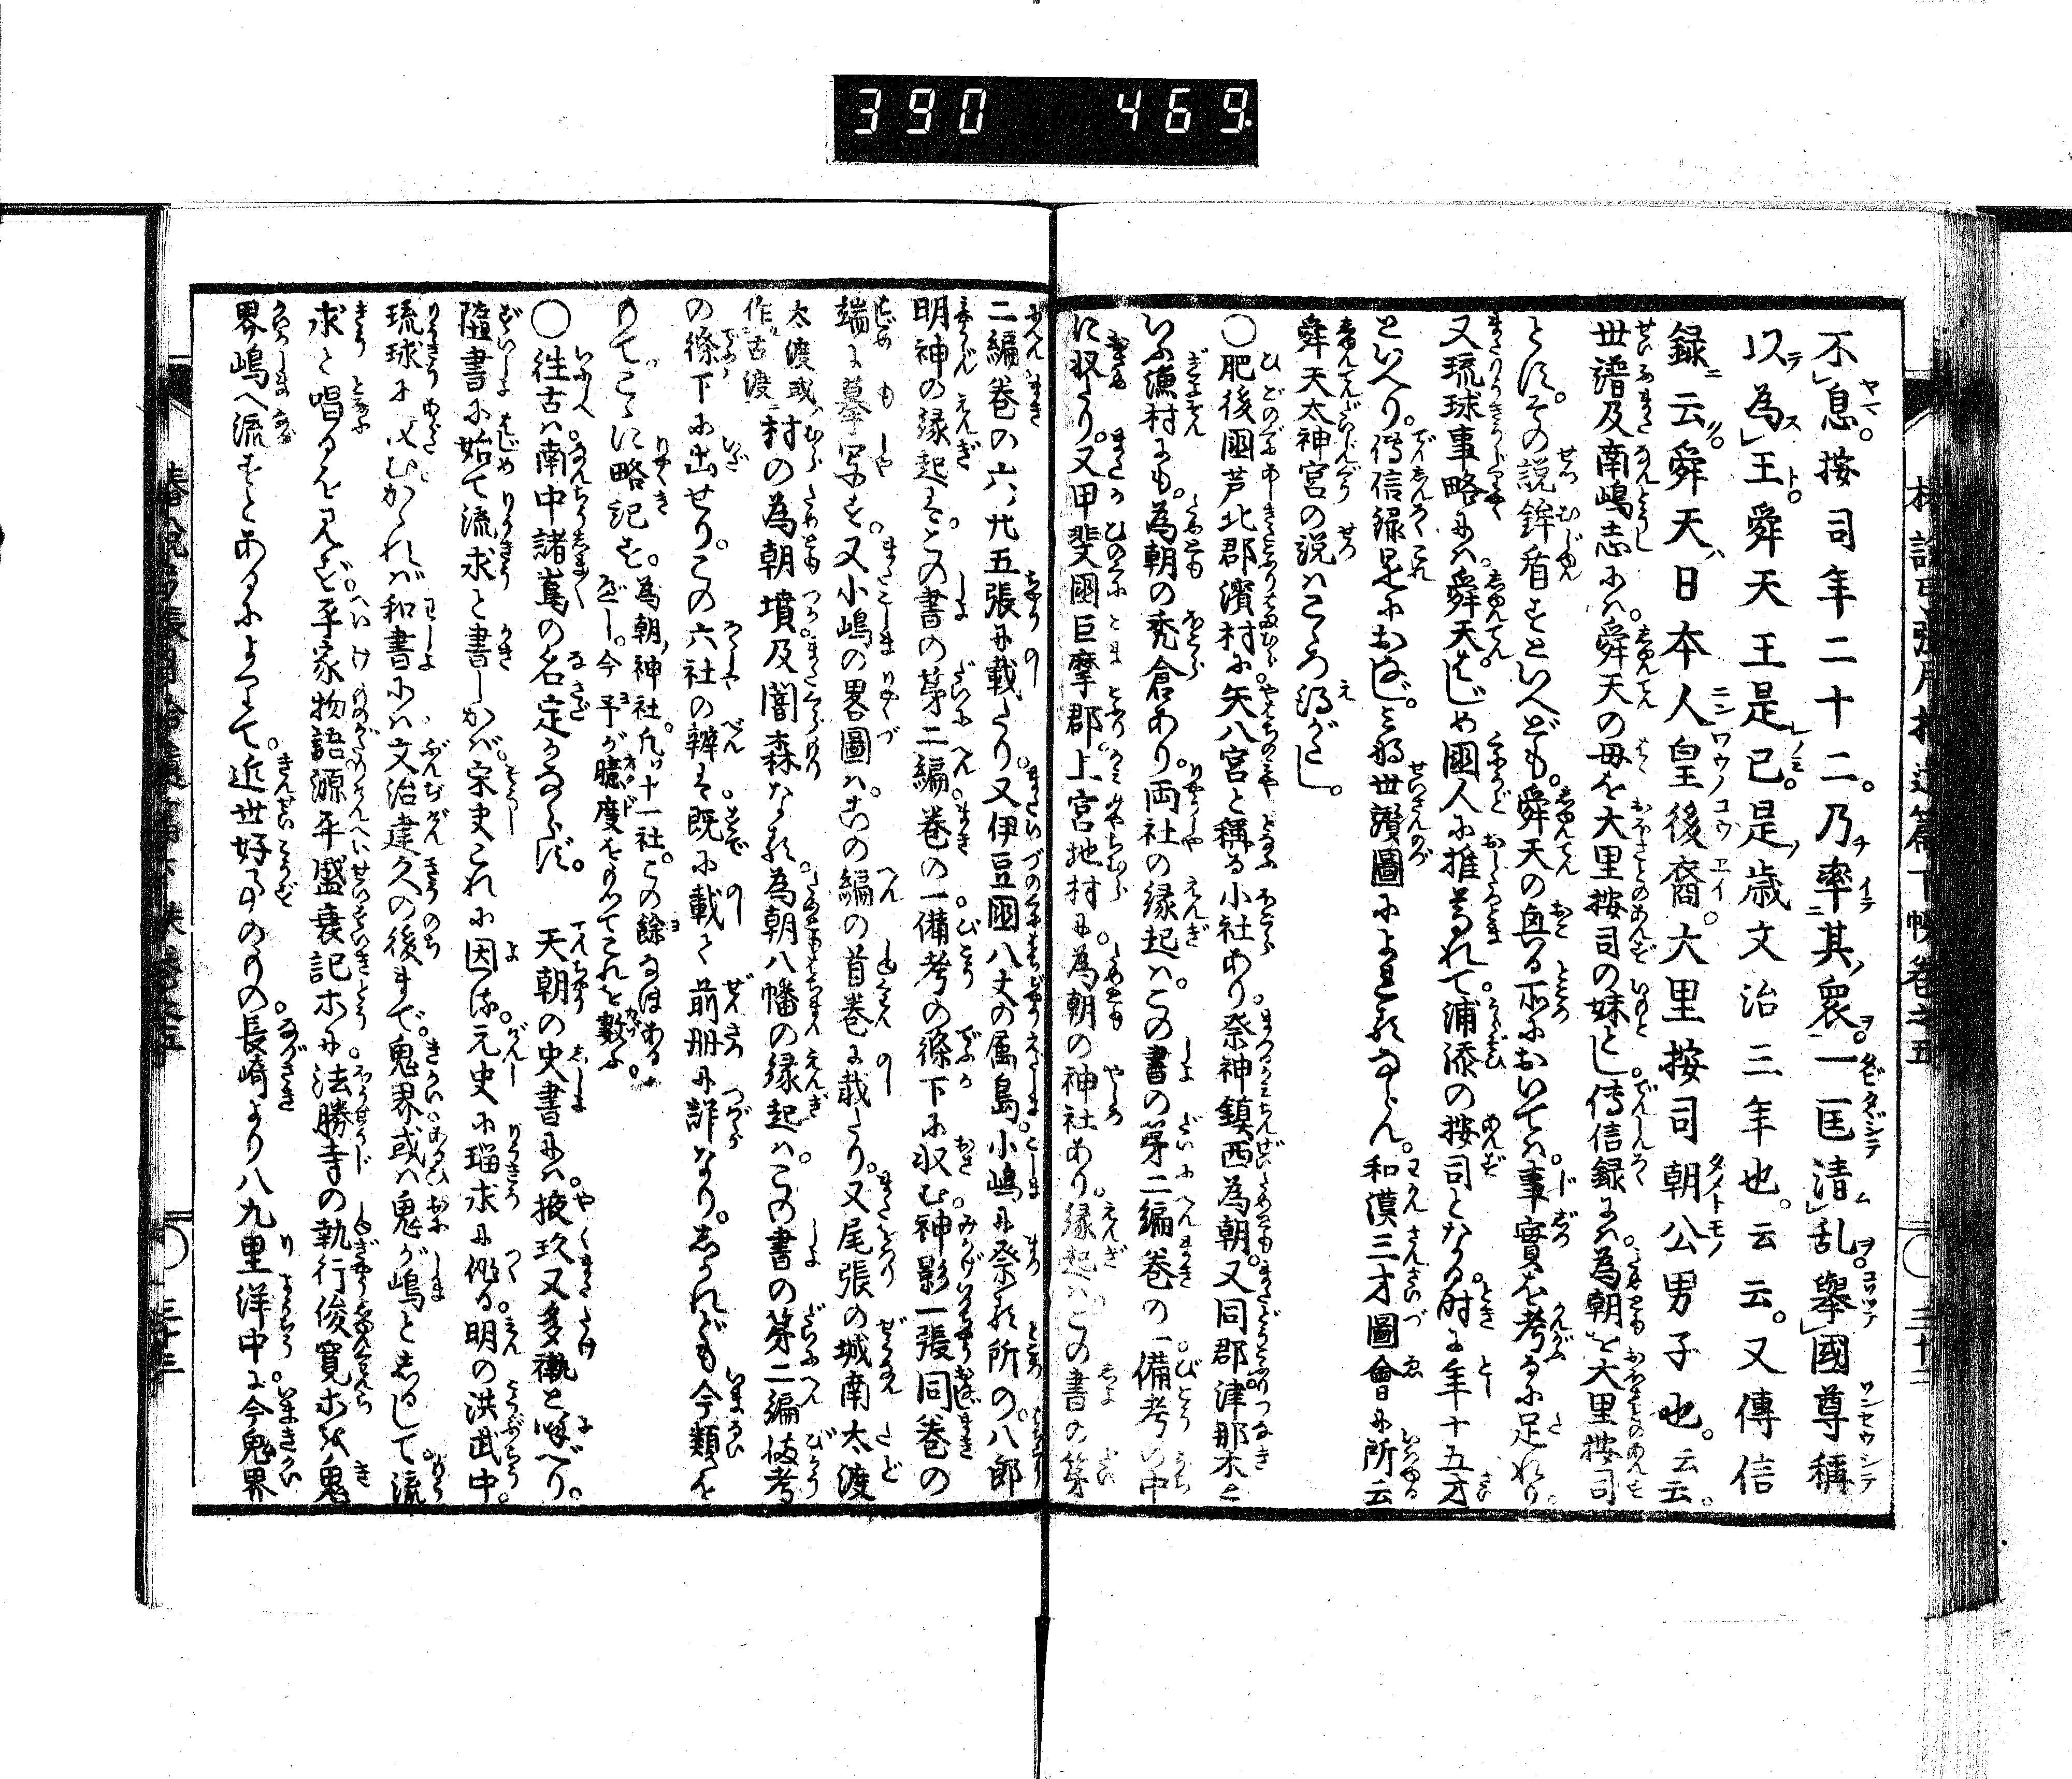 390 469
不息。按司年二十二。乃率其衆。一匡清乱。舉國尊稱
以為王舜天王是已。是歳文治三年也。云云。又傳信
録云舜天ハ日本人皇後裔。大里按司朝公男子也。云云。
世譜及南嶋志にハ。舜天の母を大里按司の妹とし。傳信録にハ。為朝を大里按司
とす。その説鉾盾すといへども。舜天の興る所においてハ。事實を考るに足れり。
又琉球事略にハ。舜天はじめ國人に推尊れて浦添の按司となる。時に年十五才
といへり。傳信録是におなじ。
舜天太神宮の説ハこゝろ得がたし。
○肥後國芦北郡濱村に矢八宮と稱る小社あり。祭神鎮西為朝。又同郡津那木と
いふ漁村にも。為朝の禿倉あり。両社の縁起ハ。この書の第二編巻の一備考の中
に収たり。又甲斐國巨摩郡。上宮地村に。為朝の神社あり。縁起ハこの書の第
二編巻の六。廿五張に載たり。又伊豆國八丈の属島。小嶋に祭る所の。八郎
明神の縁起ハ。この書の第二編。巻の一備考の條下に収む。神影一張同巻の
端に摹写す。又小嶋の畧圖ハ。この編の首巻に載たり。又尾張の城南太渡
太渡或ハ作古渡村の為朝墳及闇森なる。為朝八幡の縁起ハ。この書の第二編備考
の條下に出せり。この六社の辨ハ。既に載て前册に詳なり。しかれども今類を
もてこゝに略記す。為朝ノ神社。凡十一社。この餘なほあるべし。今予が臆度をもてこれを數ふ。
○往古ハ南中諸嶌の名定かならず。 天朝の史書にハ。掖玖又多褹と唱へり。
隨書に始て流求と書しかバ。宋史これに因る。元史に瑠求に作る。明の洪武中。
琉球に改むかゝれバ和書にハ文治建久の後まで。鬼界或ハ鬼が嶋としるして。流
求と唱るを見ず。平家物語源平盛衰記ホに法勝寺の執行俊寛ホを鬼
界嶋へ流すとあるによりて。近世好事のもの。長崎より八九里洋中に。今鬼界